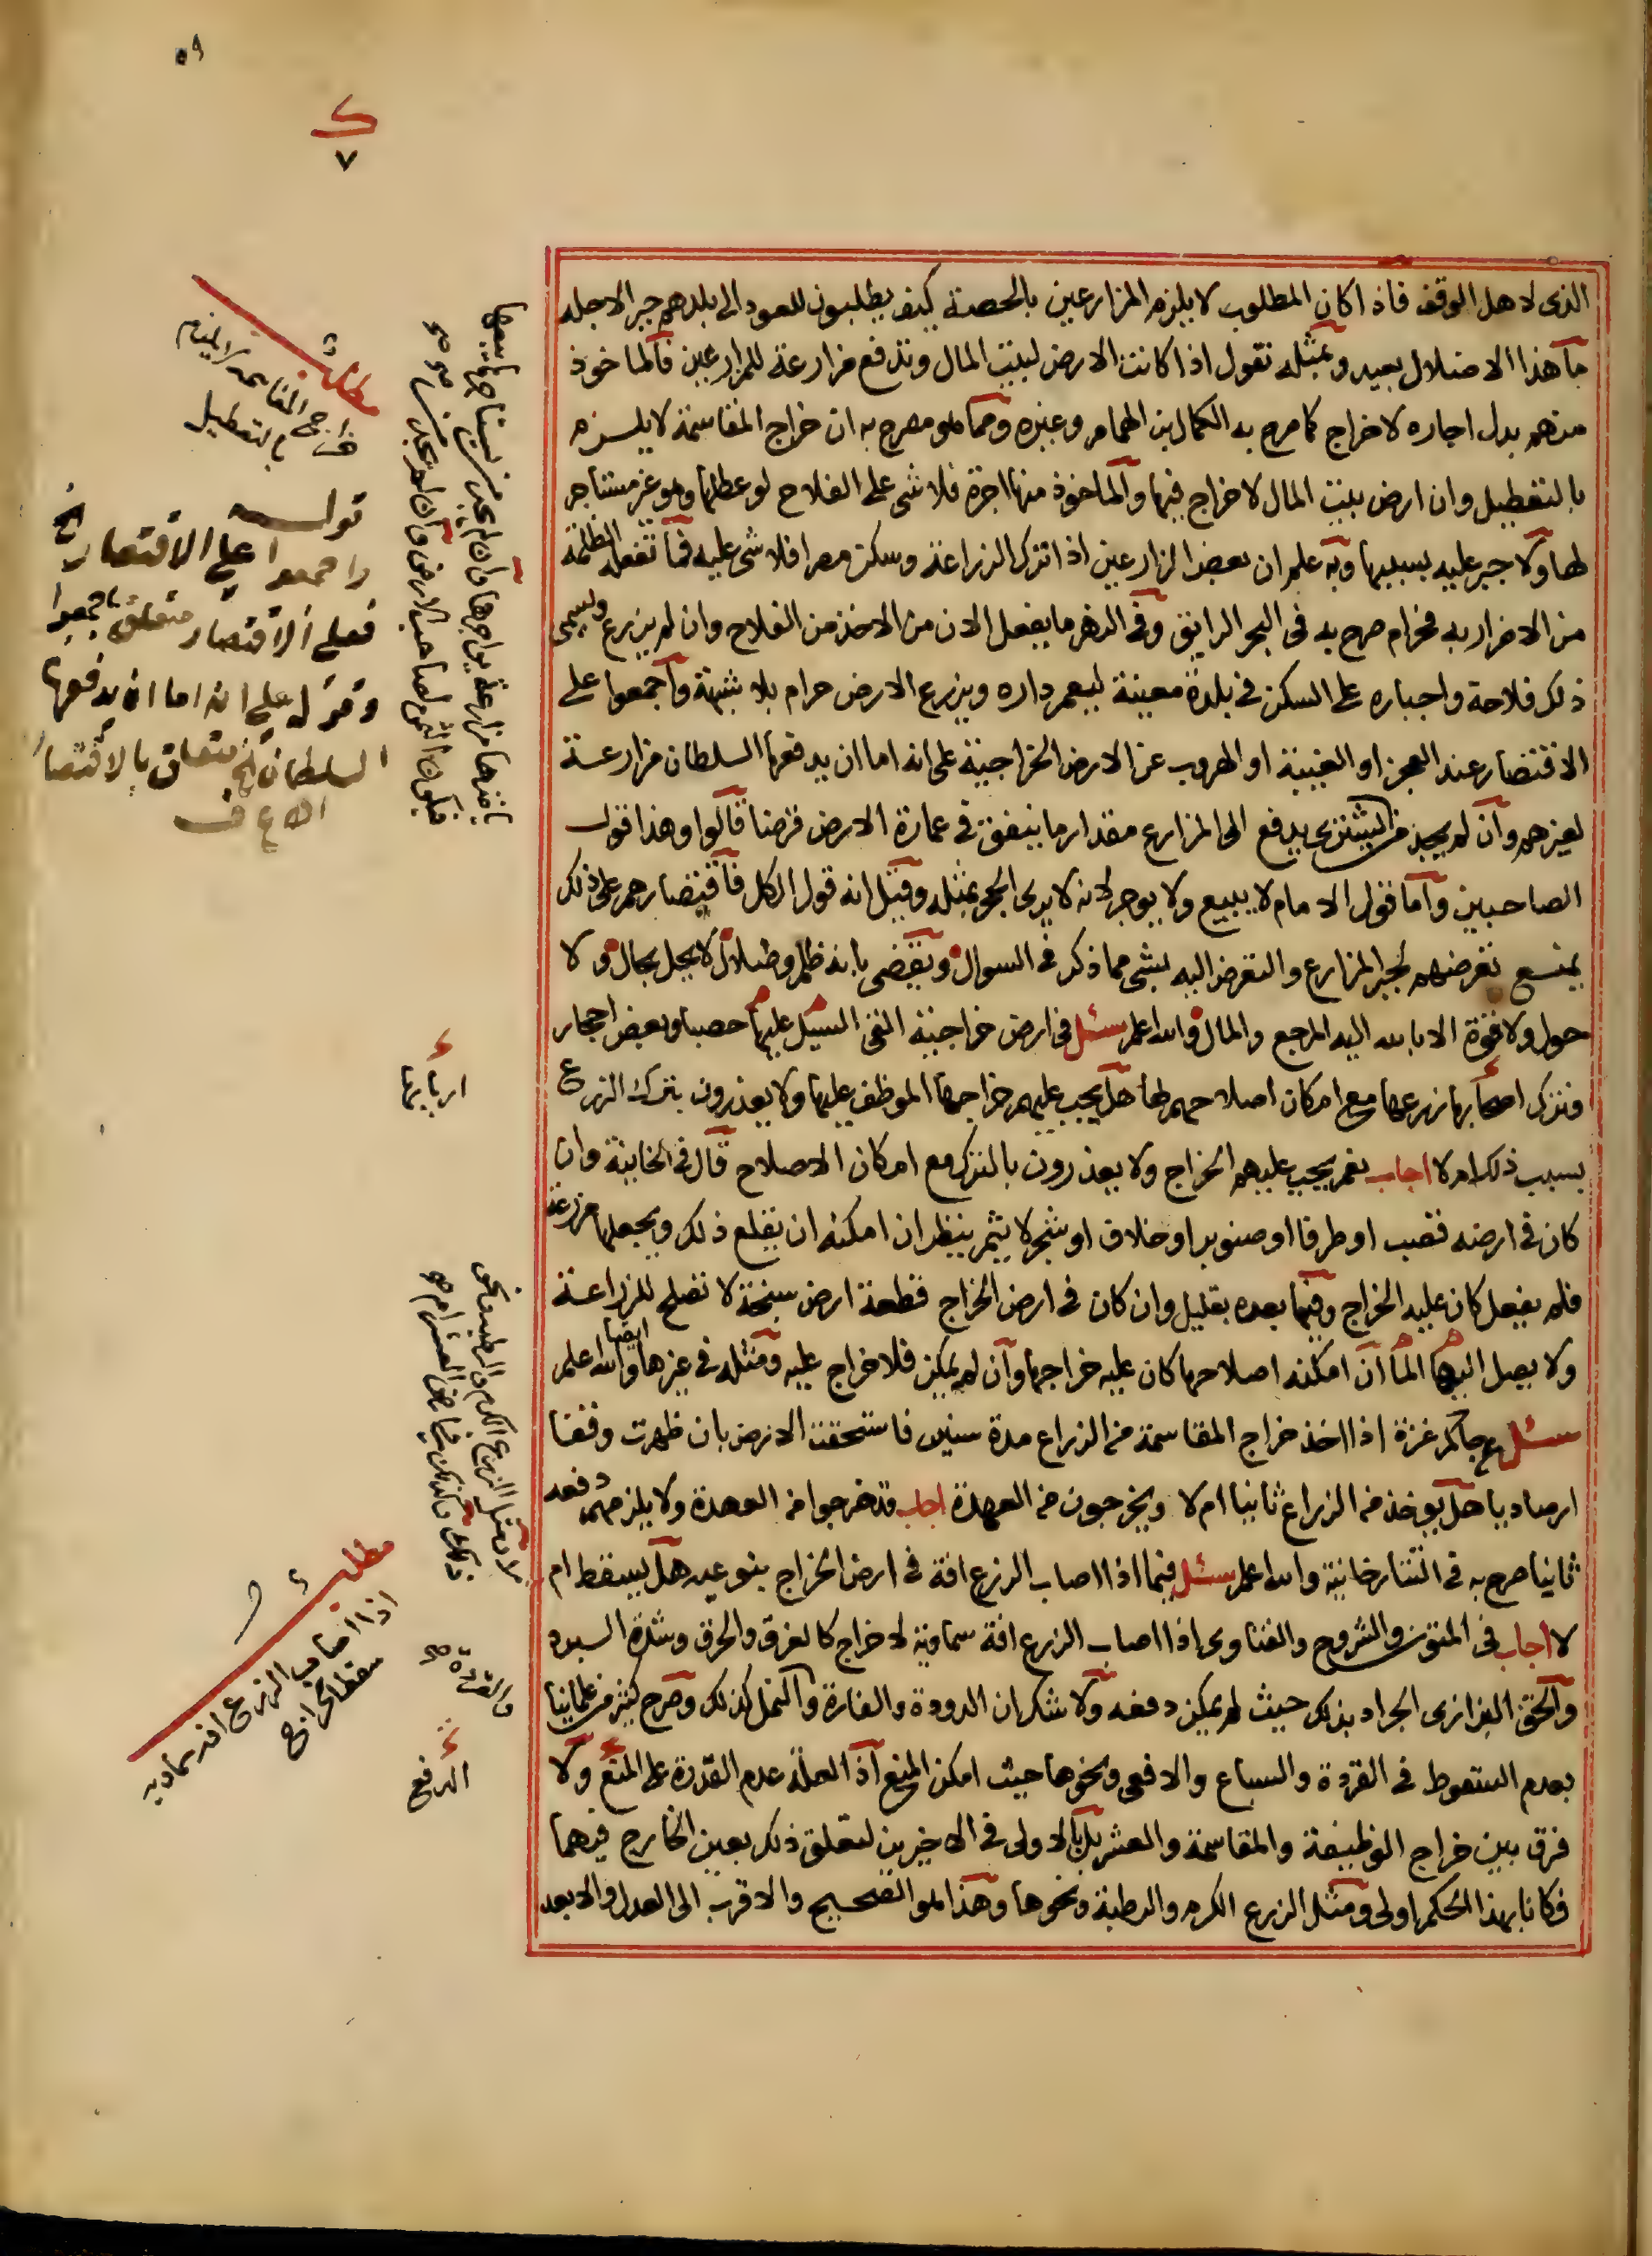 ٥٩
ک
٧
الذى لاهل الوقف فاذا كان المطلوب لا يلزم المزارعين بالحصة كيف يطلبون للعود الى بلدهم جبرا لاجله
ما هذا الا ضلال بعيد وبمثله نقول اذا كانت الارض لبيت المال وتدفع مزارعة للمزارعين فالماخوذ
منهم بدل اجاره لا خراج كما صرح به الكمال بن الهمام وغيره ومما هو مصرح به ان خراج المقاسمة لا يلزم
بالتعطيل وان ارض بيت المال لا خراج فيها والماخوذ منها اجرة فلا شى على الفلاح لو عطلها وهو غير مستاجر
لها ولا جبر عليه بسببها وبه علم ان بعض المزارعين اذا ترك الزراعة وسكن مصرا فلا شى عليه فما تفعله الظلمة
من الاضرار به فحرام صرح به فى البحر الرايق وفى النهر ما يفعل الان من الاخذ من الفلاح وان لم يزرع ويسمى
ذلك فلاحة واجباره على السكن فى بلدة معينة ليعمر داره ويزرع الارض حرام بلا شبهة واجمعوا على
الاقتصار عند العجز او الغيبة او الهروب عن الارض الخراجية على انه اما ان يدفعها السلطان مزارعة
لغيرهم وان لم يجد من يشترى يدفع الى المزارع مقدار ما ينفق فى عمارة الارض قرضا قالوا وهذا قول
الصاحبين واما قول الامام لا يبيع ولا يوجر لانه لا يرى الحجر بمثله وقيل انه قول الكل فاقتصارهم على ذلك
يمنع تعرضهم لجبر المزارع والتعرض اليه بشى مما ذكر فى السوال ويقضى بانه ظلم وضلال لا يحل بحال ولا
حول ولا قوة الا بالله اليه المرجع والمال والله اعلم سئل فى ارض خراجية القى السيل عليها حصبا وبعض احجار
فترك اصحابها زرعها مع امكان اصلاحهم لها هل يجب عليهم خراجها الموظف عليها ولا يعذرون بترك الزرع
بسبب ذلك ام لا اجاب نعم يجب عليهم الخراج ولا يعذرون بالترك مع امكان الاصلاح قال فى الخانية وان
كان فى ارضه قصب او طرفا او صنوبر او خلاف او شجر لا يثمر ينظر ان امكنه ان يقلع ذلك ويجعلها مزرعة
فلم يفعل كان عليه الخراج وفيما بعده بقليل وان كان فى ارض الخراج قطعة ارض سبخة لا تصلح للزراعة
ولا يصل اليها الما ان امكنه اصلاحها كان عليه خراجها وان لم يمكن فلا خراج عليه ومثله فى غيرها ايضا والله اعلم
سئل عن حاكم غزة اذا اخذ خراج المقاسمة من الزراع مدة سنين فاستحقت الارض بان ظهرت وقفا
ارصاديا هل يوخذ من الزراع ثانيا ام لا ويخرجون من العهدة اجاب قد خرجوا من العهدة ولا يلزمهم دفعه
ثانيا صرح به فى التتارخانية والله اعلم سئل فيما اذا اصاب الزرع افة فى ارض الخراج بنوعيه هل يسقط ام
لا اجاب فى المتون والشروح والفتاوى اذا اصاب الزرع افة سماوية لا خراج كالغرق والحرق وشدة البرد
والحق البزازى الجراد بذلك حيث لم يمكن دفعه ولا شك ان الدودة والفارة والنمل كذلك وصرح كثير من علمائنا
بعدم السقوط فى القردة والسباع والافعى ونحوها حيث امكن المنع اذ العلة عدم القدرة على المنع ولا
فرق بين خراج الوظيفة والمقاسمة والعشر بل بالاولى فى الاخيرين لتعلق ذلك بعين الخارج فيهما
فكانا بهذا الحكم اولى ومثل الزرع الكرم والرطبة ونحوها وهذا هو الصحيح والاقرب الى العدل والابعد
مطلب
خراج المقاسمة لا يلزم
بالتعطيل
قوله
واجمعوا على الاقتصار الخ
فعلى الاقتصار متعلق باجمعوا
وقوله على انه اما ان يدفعها
السلطان الخ متعلق بالاقتصار
اربابها
مطلب
اذا اصاب الزرع افة سماوية
سقط الخراج
والقردة صح
الدفع